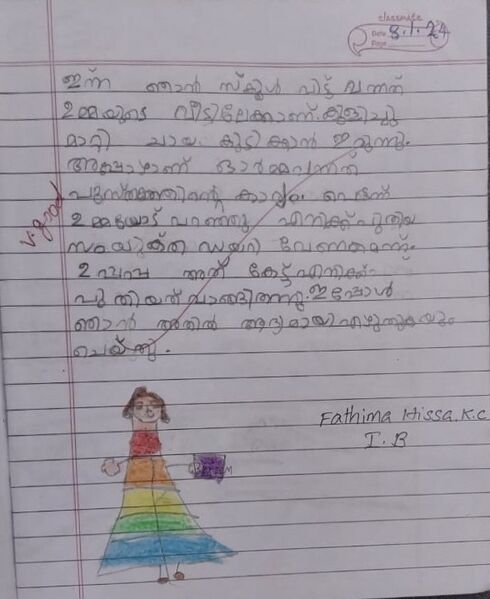 classmate
Date 8.1.24
Page
ഇന്ന് ഞാൻ സ്കൂൾ വിട്ട് വന്നത്
ഉമ്മയുടെ വീട്ടിലേക്കാണ്. കുളിച്ചു
മാറ്റി ചായ കുടിക്കാൻ ഇരുന്നു.
അപ്പോഴാണ് ഓർമ്മവന്നത്
പുസ്തകത്തിന്റെ കാര്യം. പെട്ടെന്ന്
ഉമ്മയോട് പറഞ്ഞു എനിക്ക് പുതിയ
സംയുക്ത ഡയറി വേണമെന്ന്.
ഉപ്പച്ചി അത് കേട്ട് എനിക്ക്
പുതിയത് വാങ്ങി തന്നു. ഇപ്പോൾ
ഞാൻ അതിൽ ആദ്യമായി എഴുതുകയും
ചെയ്തു.
v. good
Fathima Hissa. K. C
I. B